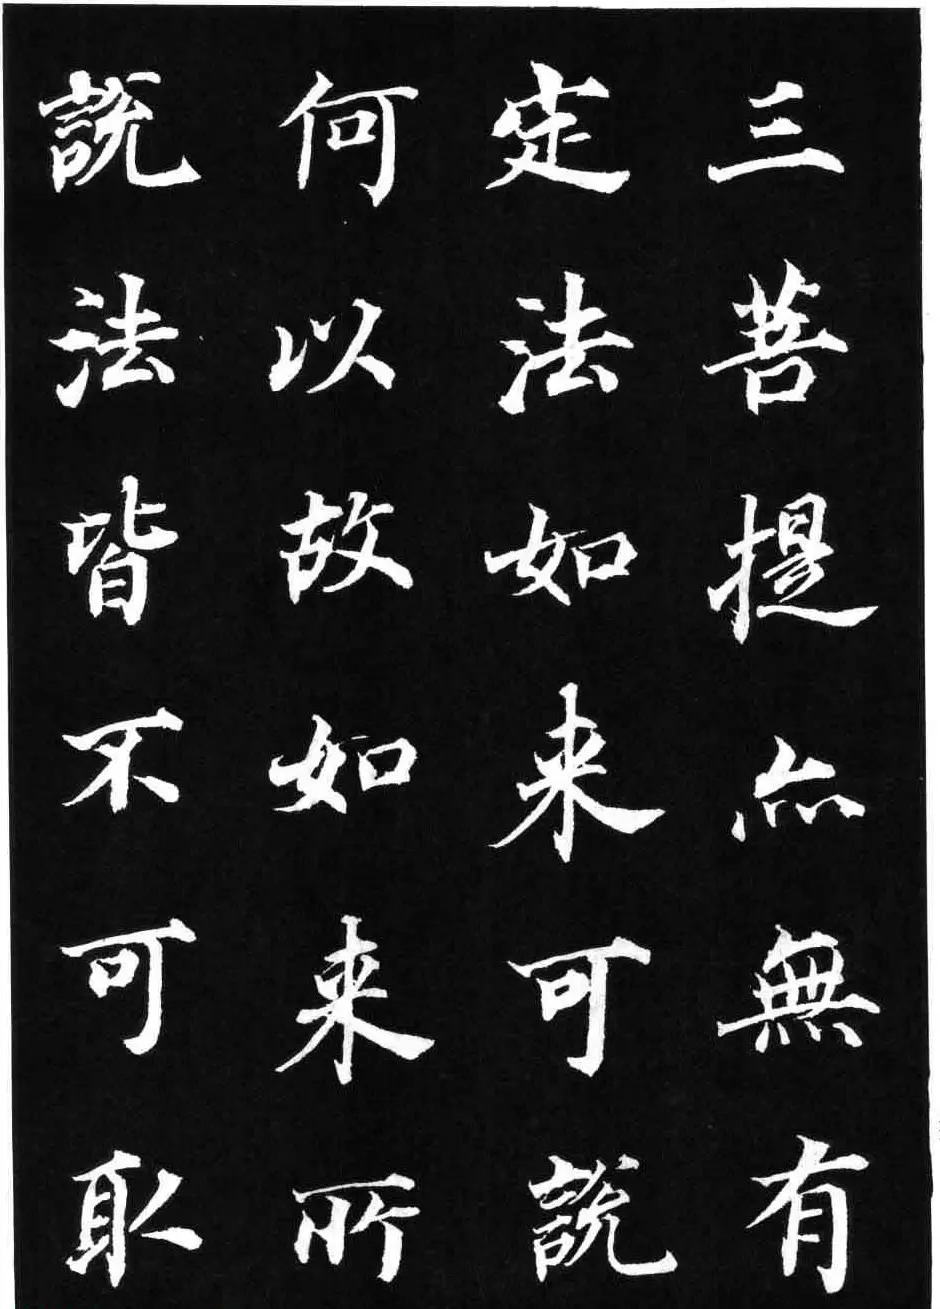 三菩提亦無有
定法如来可說
何以故如来所
說法皆不可取